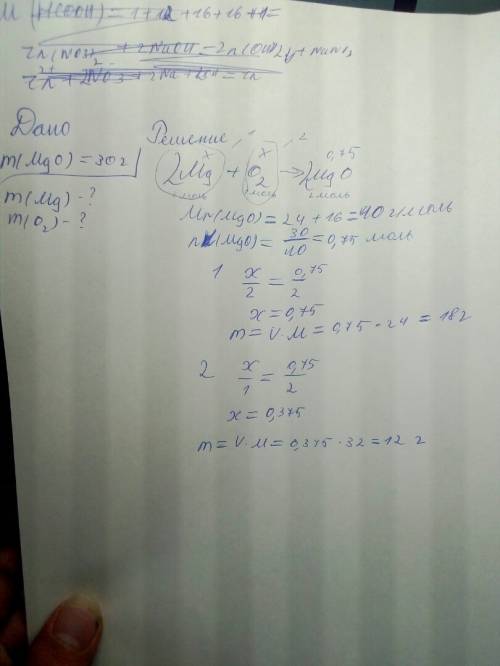 M (HCOOH) = 1 + 12 + 16 + 16 + 1 =
Zn(NO3)2 + 2NaOH = Zn(OH)2↓ + NaNO3
Zn2+ + 2NO3 + 2Na + 2OH = Zn
Дано
m(MgO) = 30г
m(Mg) - ?
m(O2) - ?
Решение
x x 0,75
2Mg + O2 → 2MgO
2моль 1моль 2моль
Mr(MgO) = 24 + 16 = 40 г/моль
n(MgO) = 30/40 = 0,75 моль
1 x/2 = 0,75/2
x = 0,75
m = V · M = 0,75 · 24 = 18г
2 x/1 = 0,75/2
x = 0,375
m = V · M = 0,375 · 32 = 12 г